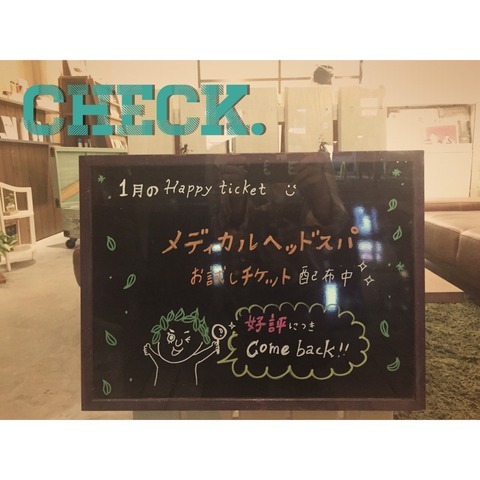 CHECK.
1月のHappy ticket
メディカルヘッドスパ
お試しチケット配布中
好評につき
Come back!!